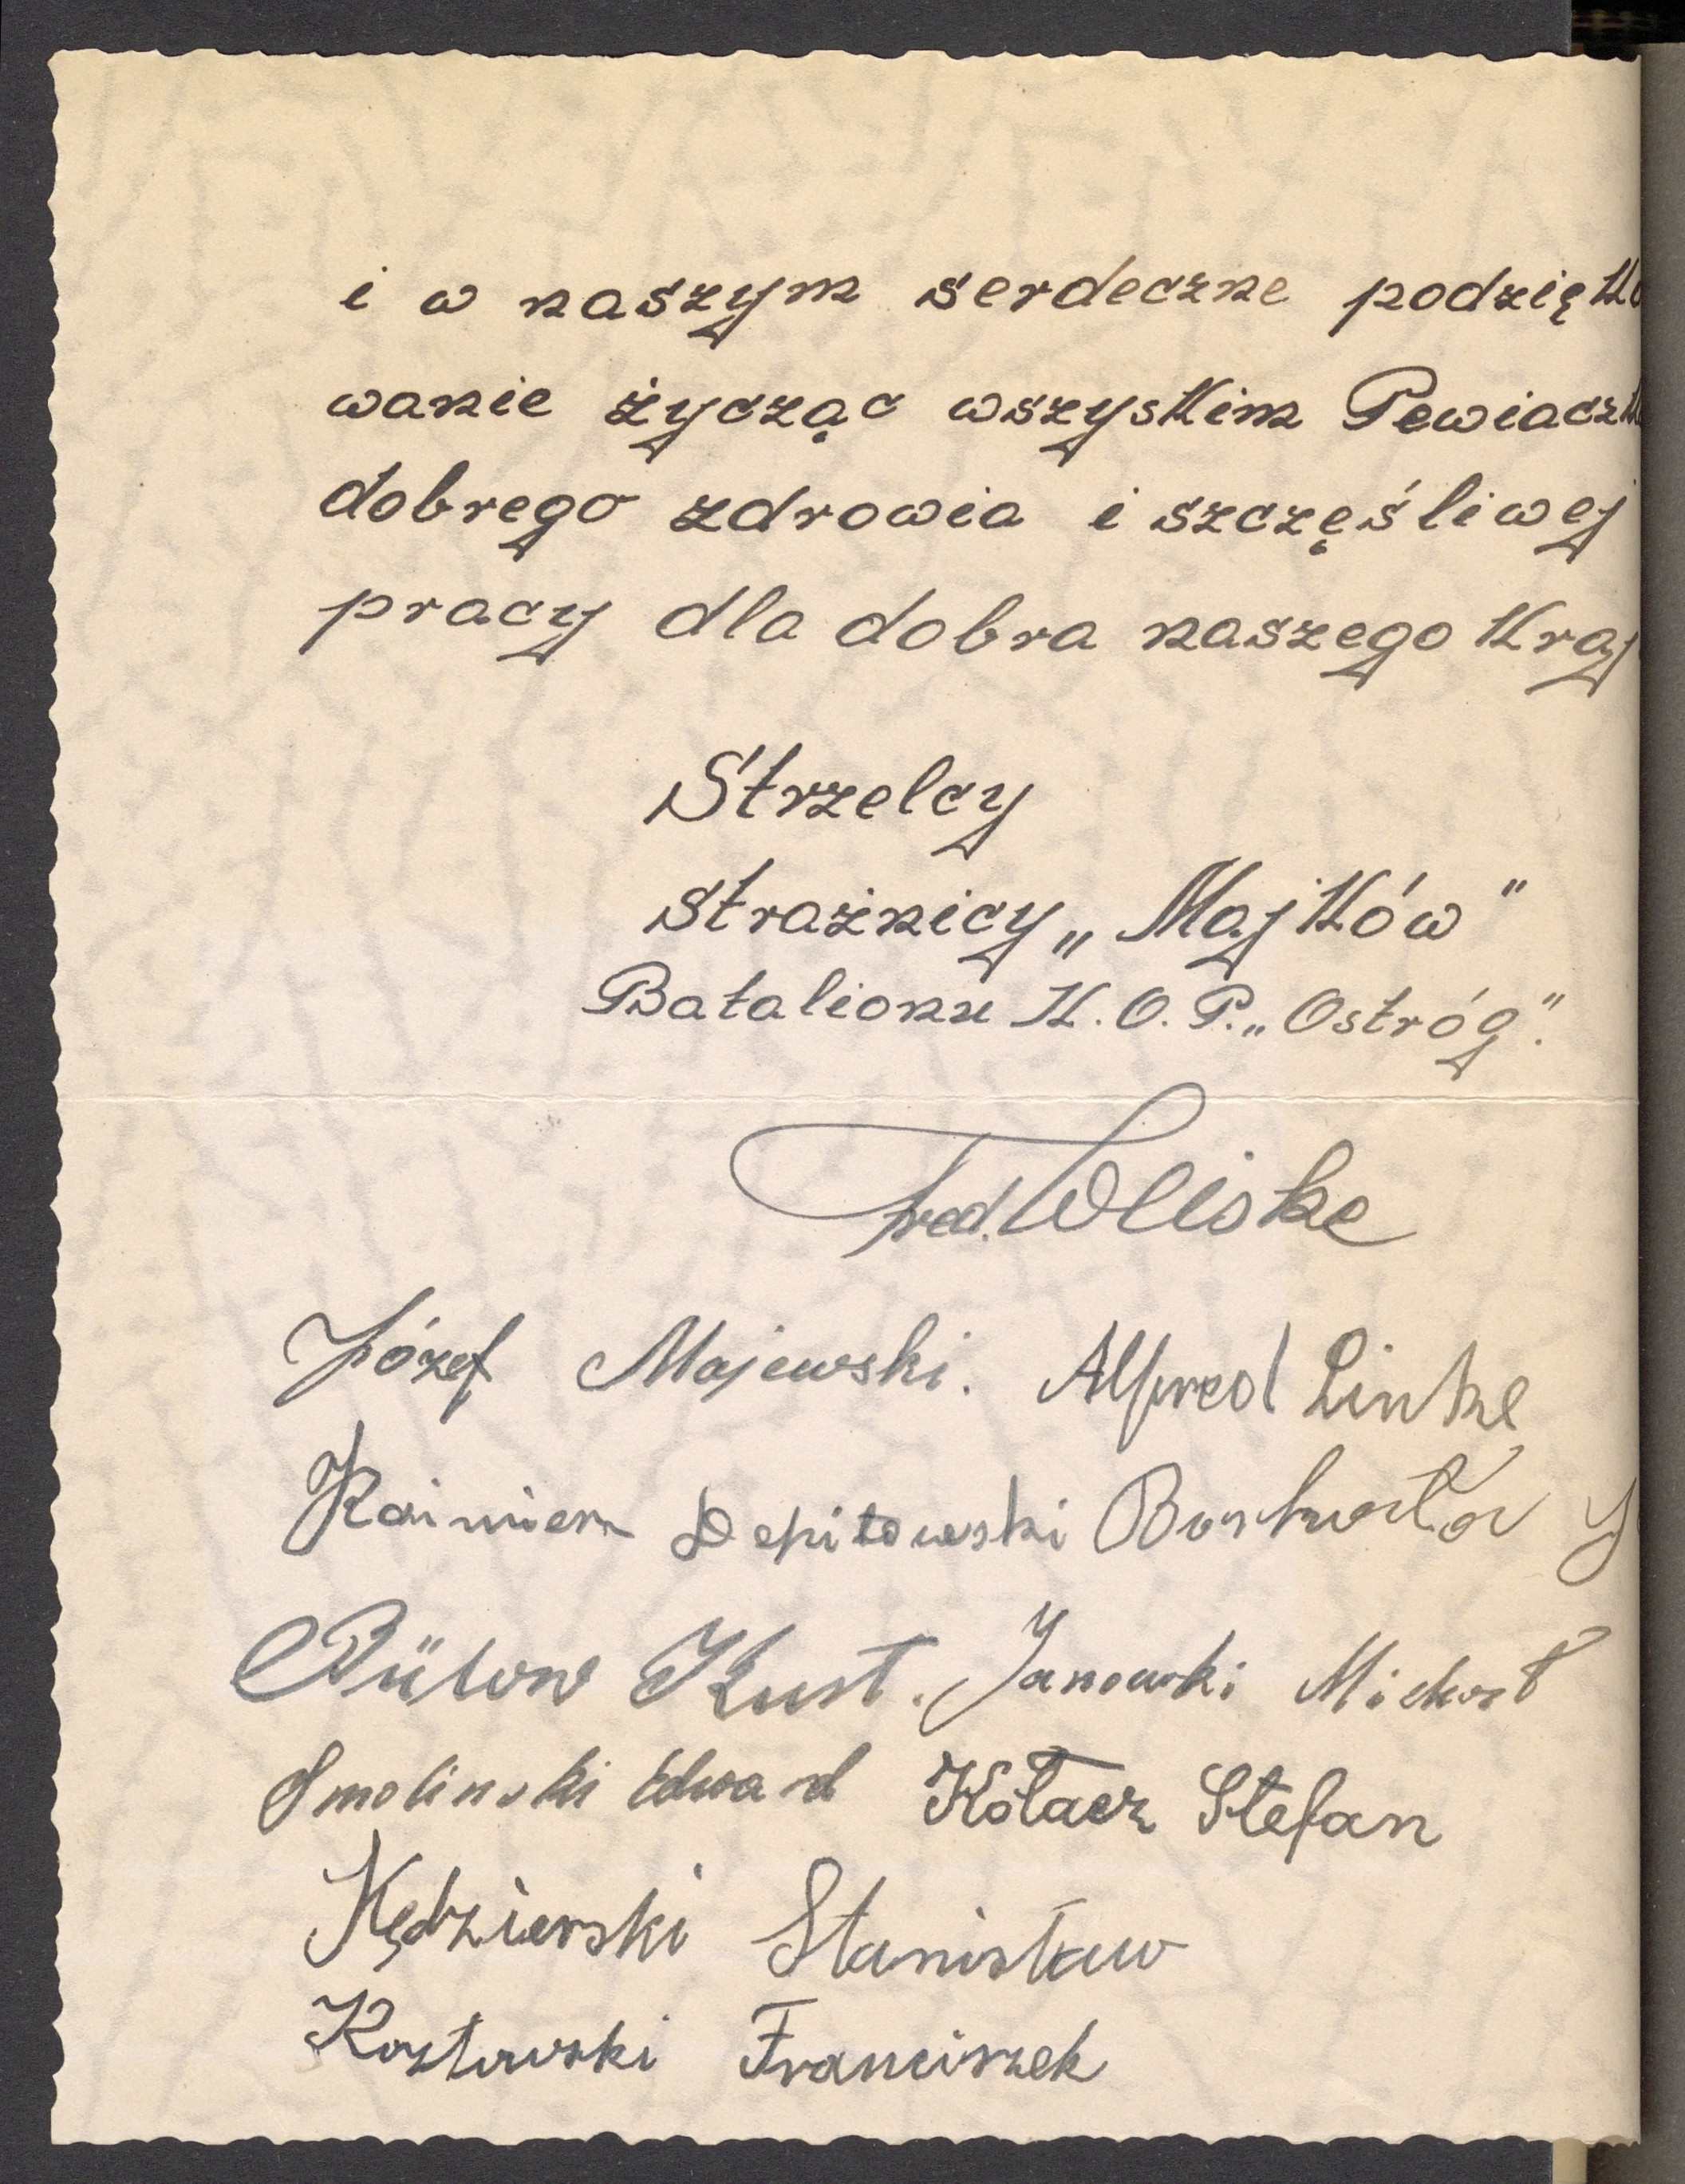 i w naszym serdeczne podzięko
wanie życząc wszyskim Pewiaczk
dobrego zdrowia i szczęśliwej
pracy dla dobra naszego Kraj
Strzelcy
strażnicy „Majków"
Batalionu K.O.P. „Ostróg".
Fred. Weiske
Józef Majewski. Alfred Linke
Kaimierz
Bülow Kust. Janowski Michał
Smolinski Edward Kołacz Stefan
Kędzierski Stanisław
Kozłowski Franciszek